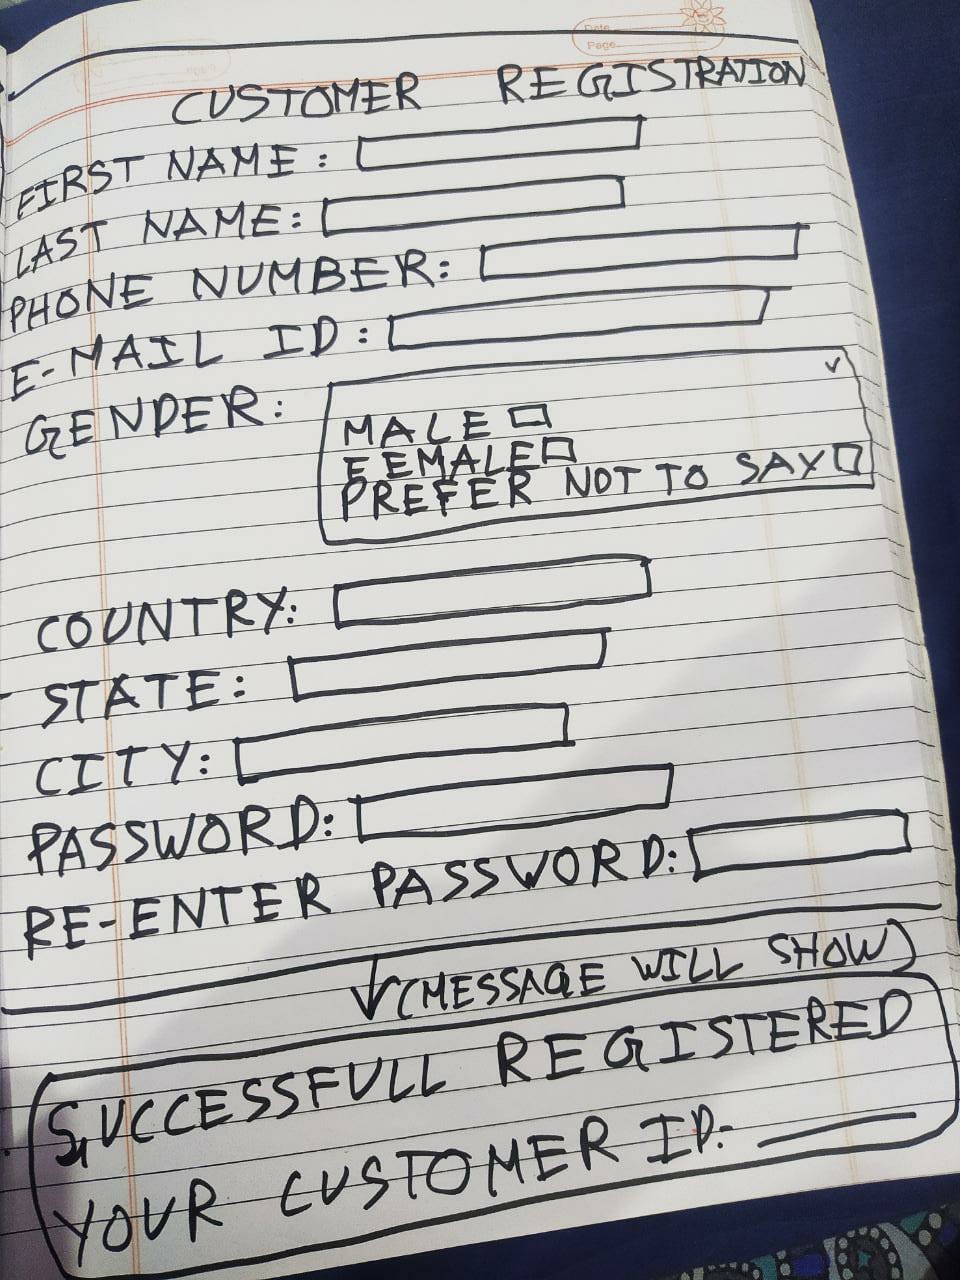 Date
Page
CUSTOMER REGISTRATION
FIRST NAME:
LAST NAME:
PHONE NUMBER:
E-MAIL ID:
GENDER:
MALE
FEMALE
PREFER NOT TO SAY
COUNTRY:
STATE:
CITY:
PASSWORD:
RE-ENTER PASSWORD:
(MESSAGE WILL SHOW)
SUCCESSFULL REGISTERED
YOUR CUSTOMER ID:-